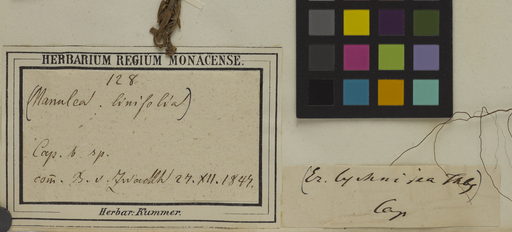 HERBARIUM REGIUM MONACENSE.
128
(Manulea. linifolia)
Cap. b. sp.
com. B. v. 27. XII. 1847.
Herbar. Kummer.
(Er. lychnidea Thbg)
Cap